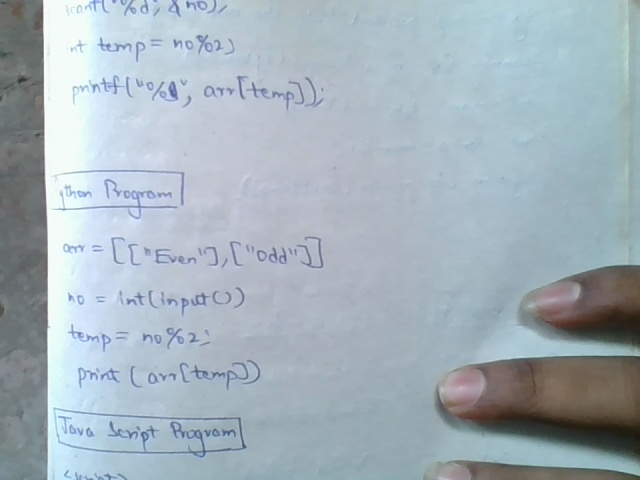 scanf("%d", &no);
int temp = no%2;
printf("%s", arr[temp]);
ython Program
arr = [["Even"],["Odd"]]
no = int(input())
temp = no%2;
print (arr[temp])
Java Script Program
<script>